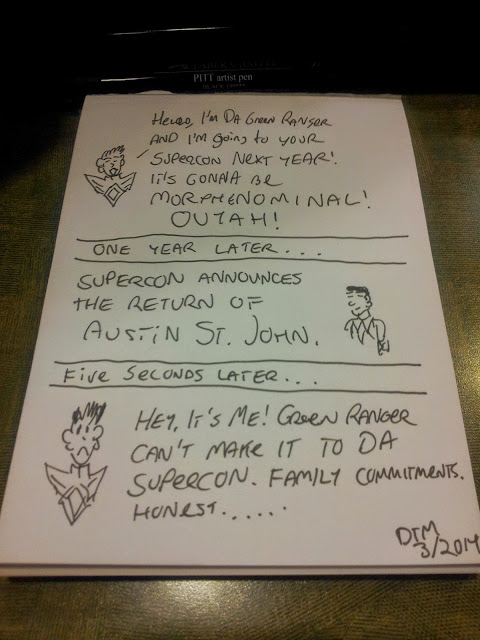 PITT artist pen
Hello, I'm Da Green Ranger
and I'm going to your
Supercon next year!
It's gonna be
MORPHENOMINAL!
OUYAH!
ONE YEAR LATER...
SUPERCON ANNOUNCES
THE RETURN OF
AUSTIN ST. JOHN.
FIVE SECONDS LATER...
HEY, IT'S ME! GREEN RANGER
CAN'T MAKE IT TO DA
SUPERCON. FAMILY COMMITMENTS.
HONEST......
DTM
3/2014